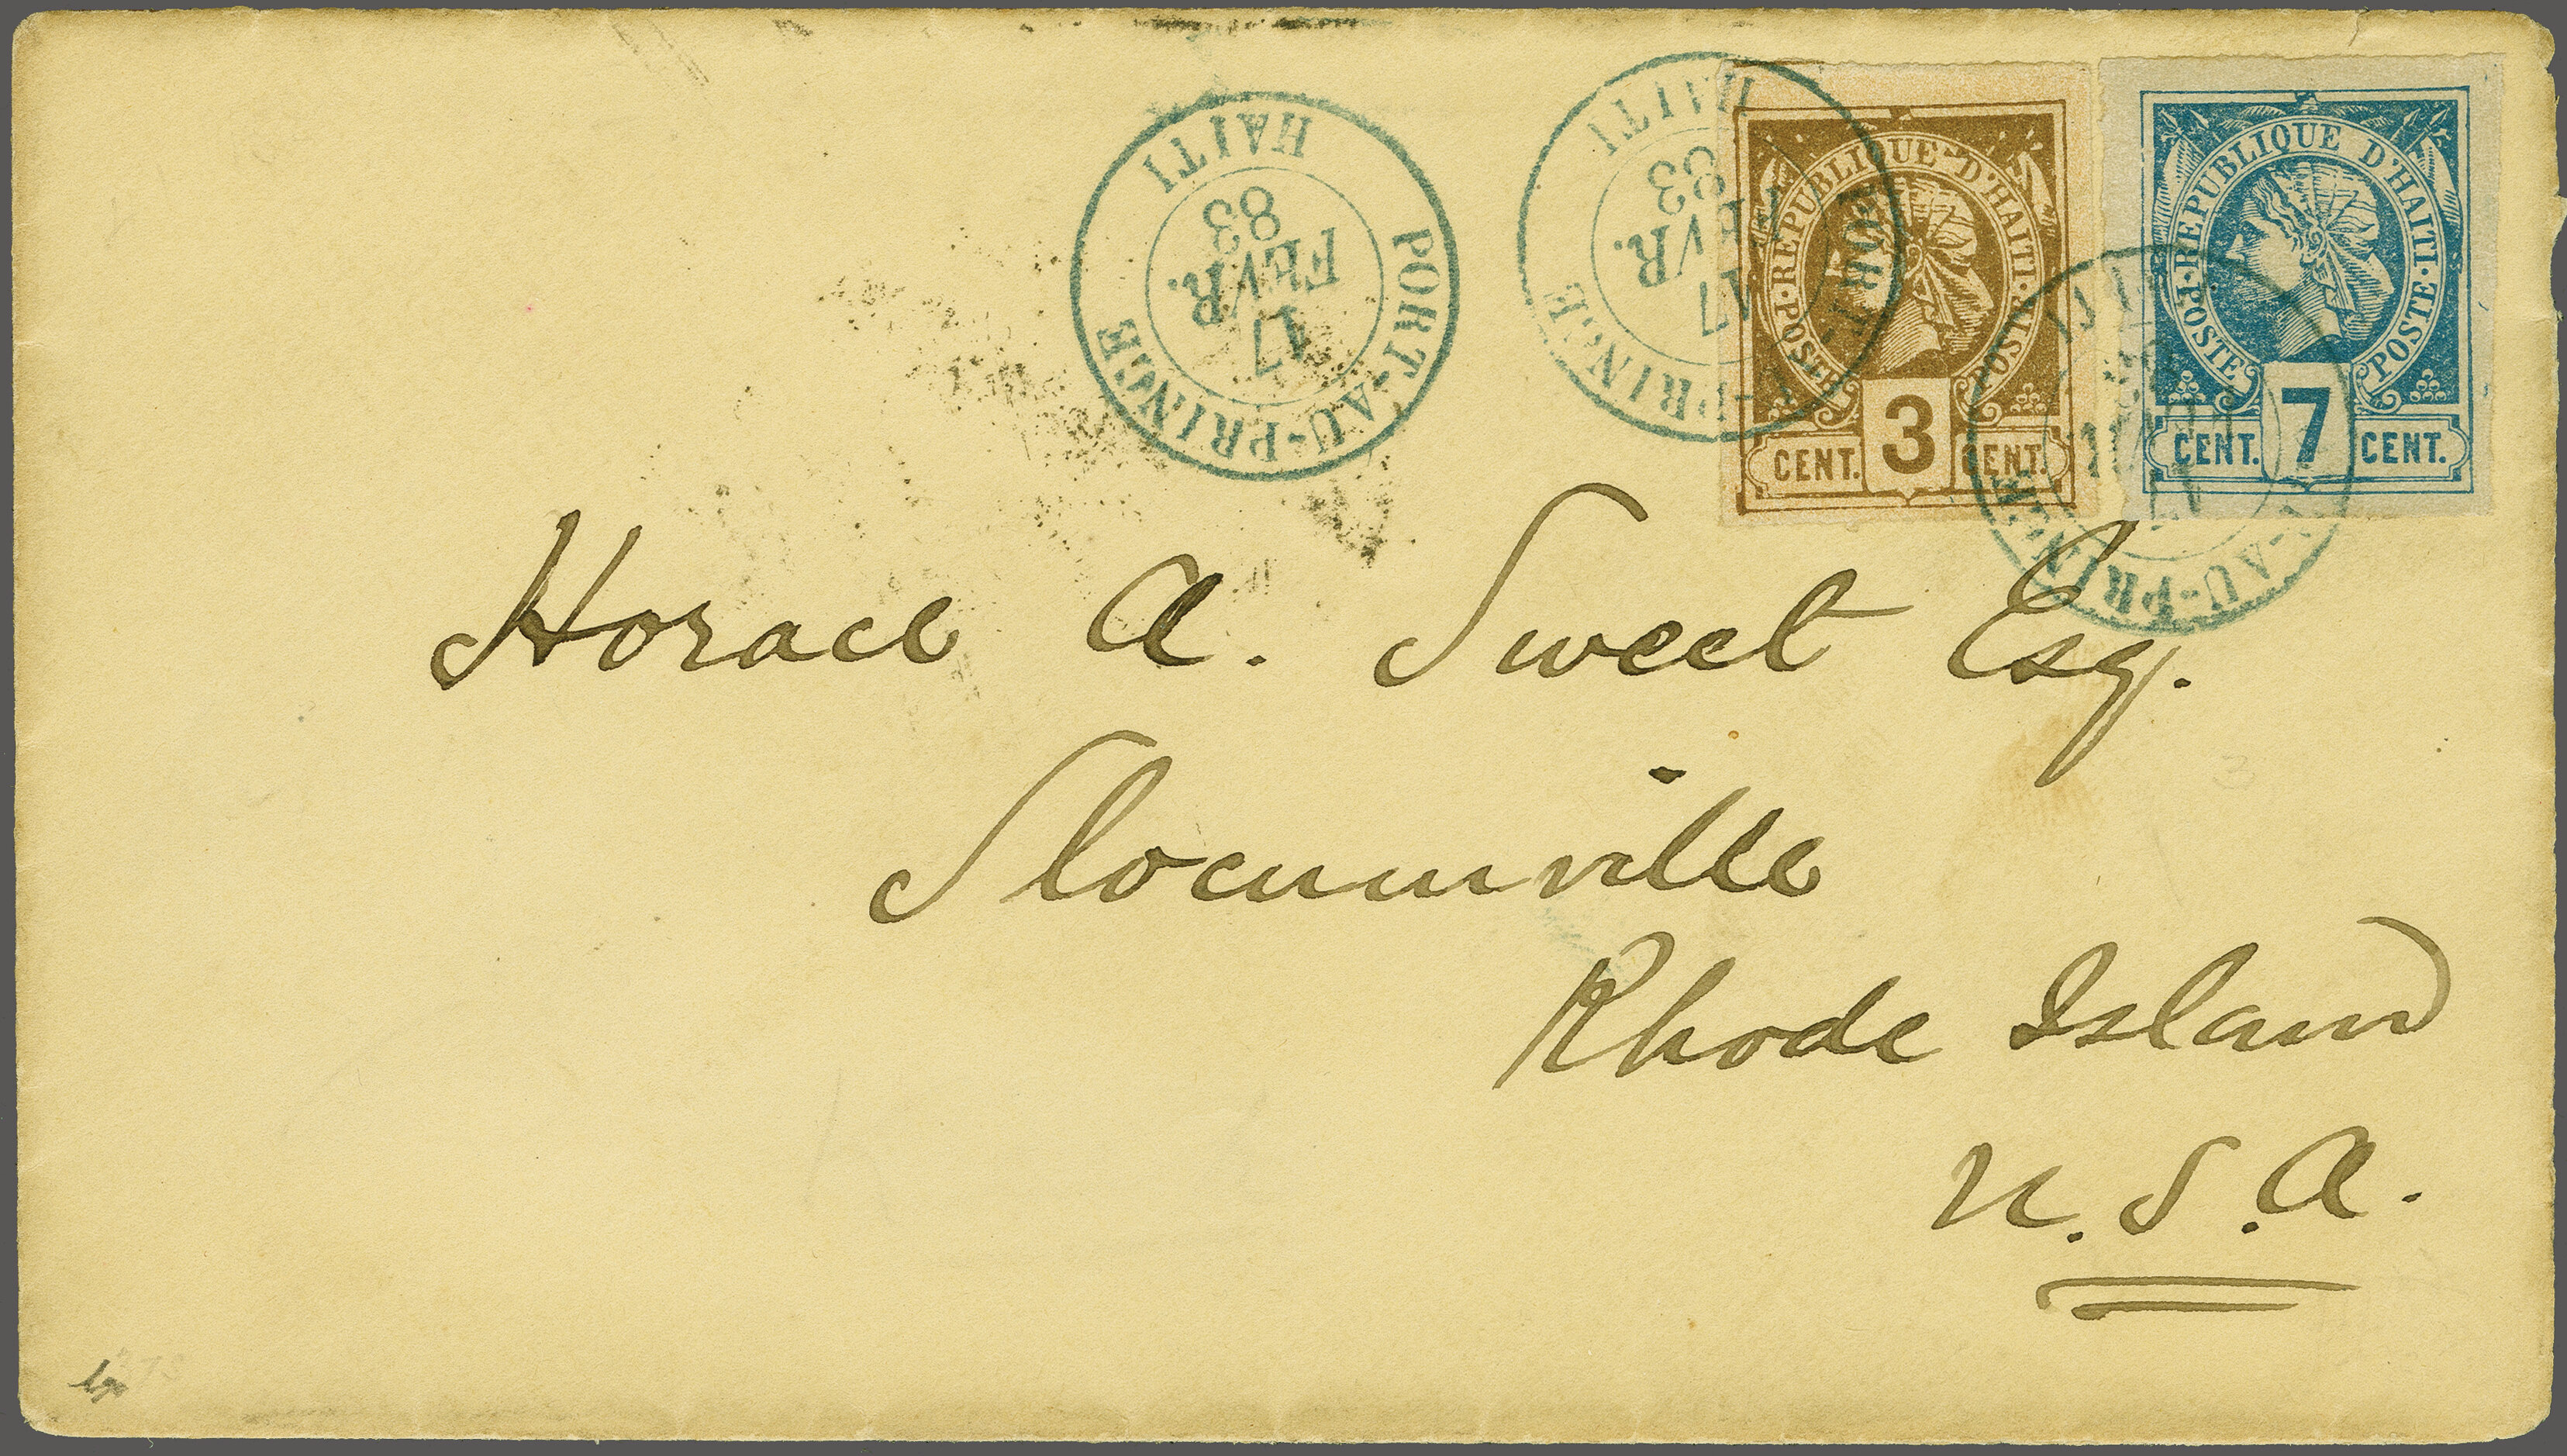 HAITI
83
FEVR.
17
PORT-AU-PRINCE
HAITI
83
VR.
17
PRINCE
POSTES·REPUBLIQUE D'HAITI·POSTES
CENT. 3 CENT.
POSTE·REPUBLIQUE D'HAITI·POSTE
CENT. 7 CENT.
AU-PRINCE
Horace A. Sweet Esq.
Slocumville
Rhode Island
U.S.A.